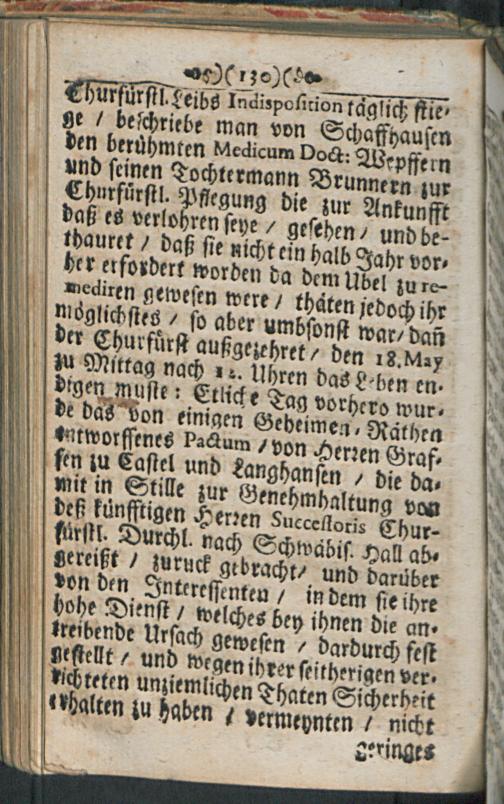 )(130)(
Churfürstl. Leibs Indisposition täglich stie-
ge / beschriebe man von Schaffhausen
den berühmten Medicum Doct: Wepffern
und seinen Tochtermann Brunnern zur
Churfürstl. Pflegung die zur Ankunfft
daß es verlohren seye / gesehen / und be-
thauret / daß sie nicht ein halb Jahr vor-
her erfordert worden da dem Ubel zu re-
mediren gewesen were / thäten jedoch ihr
möglichstes / so aber umbsonst war / dañ
der Churfürst außgezehret / den 18. May
zu Mittag nach 12. Uhren das Leben en-
digen muste : Etliche Tag vorhero wur-
de das von einigen Geheimen-Räthen
entworffenes Pactum / von Herren Graf-
fen zu Castel und Langhansen / die da-
mit in Stille zur Genehmhaltung von
deß künfftigen Herren Successoris Chur-
fürstl. Durchl. nach Schwäbis. Hall ab-
gereißt / zuruck gebracht / und darüber
von den Interessenten / in dem sie ihre
hohe Dienst / welches bey ihnen die an-
treibende Ursach gewesen / dardurch fest
gestellt / und wegen ihrer seitherigen ver-
richteten unziemlichen Thaten Sicherheit
erhalten zu haben / vermeynten / nicht
geringes